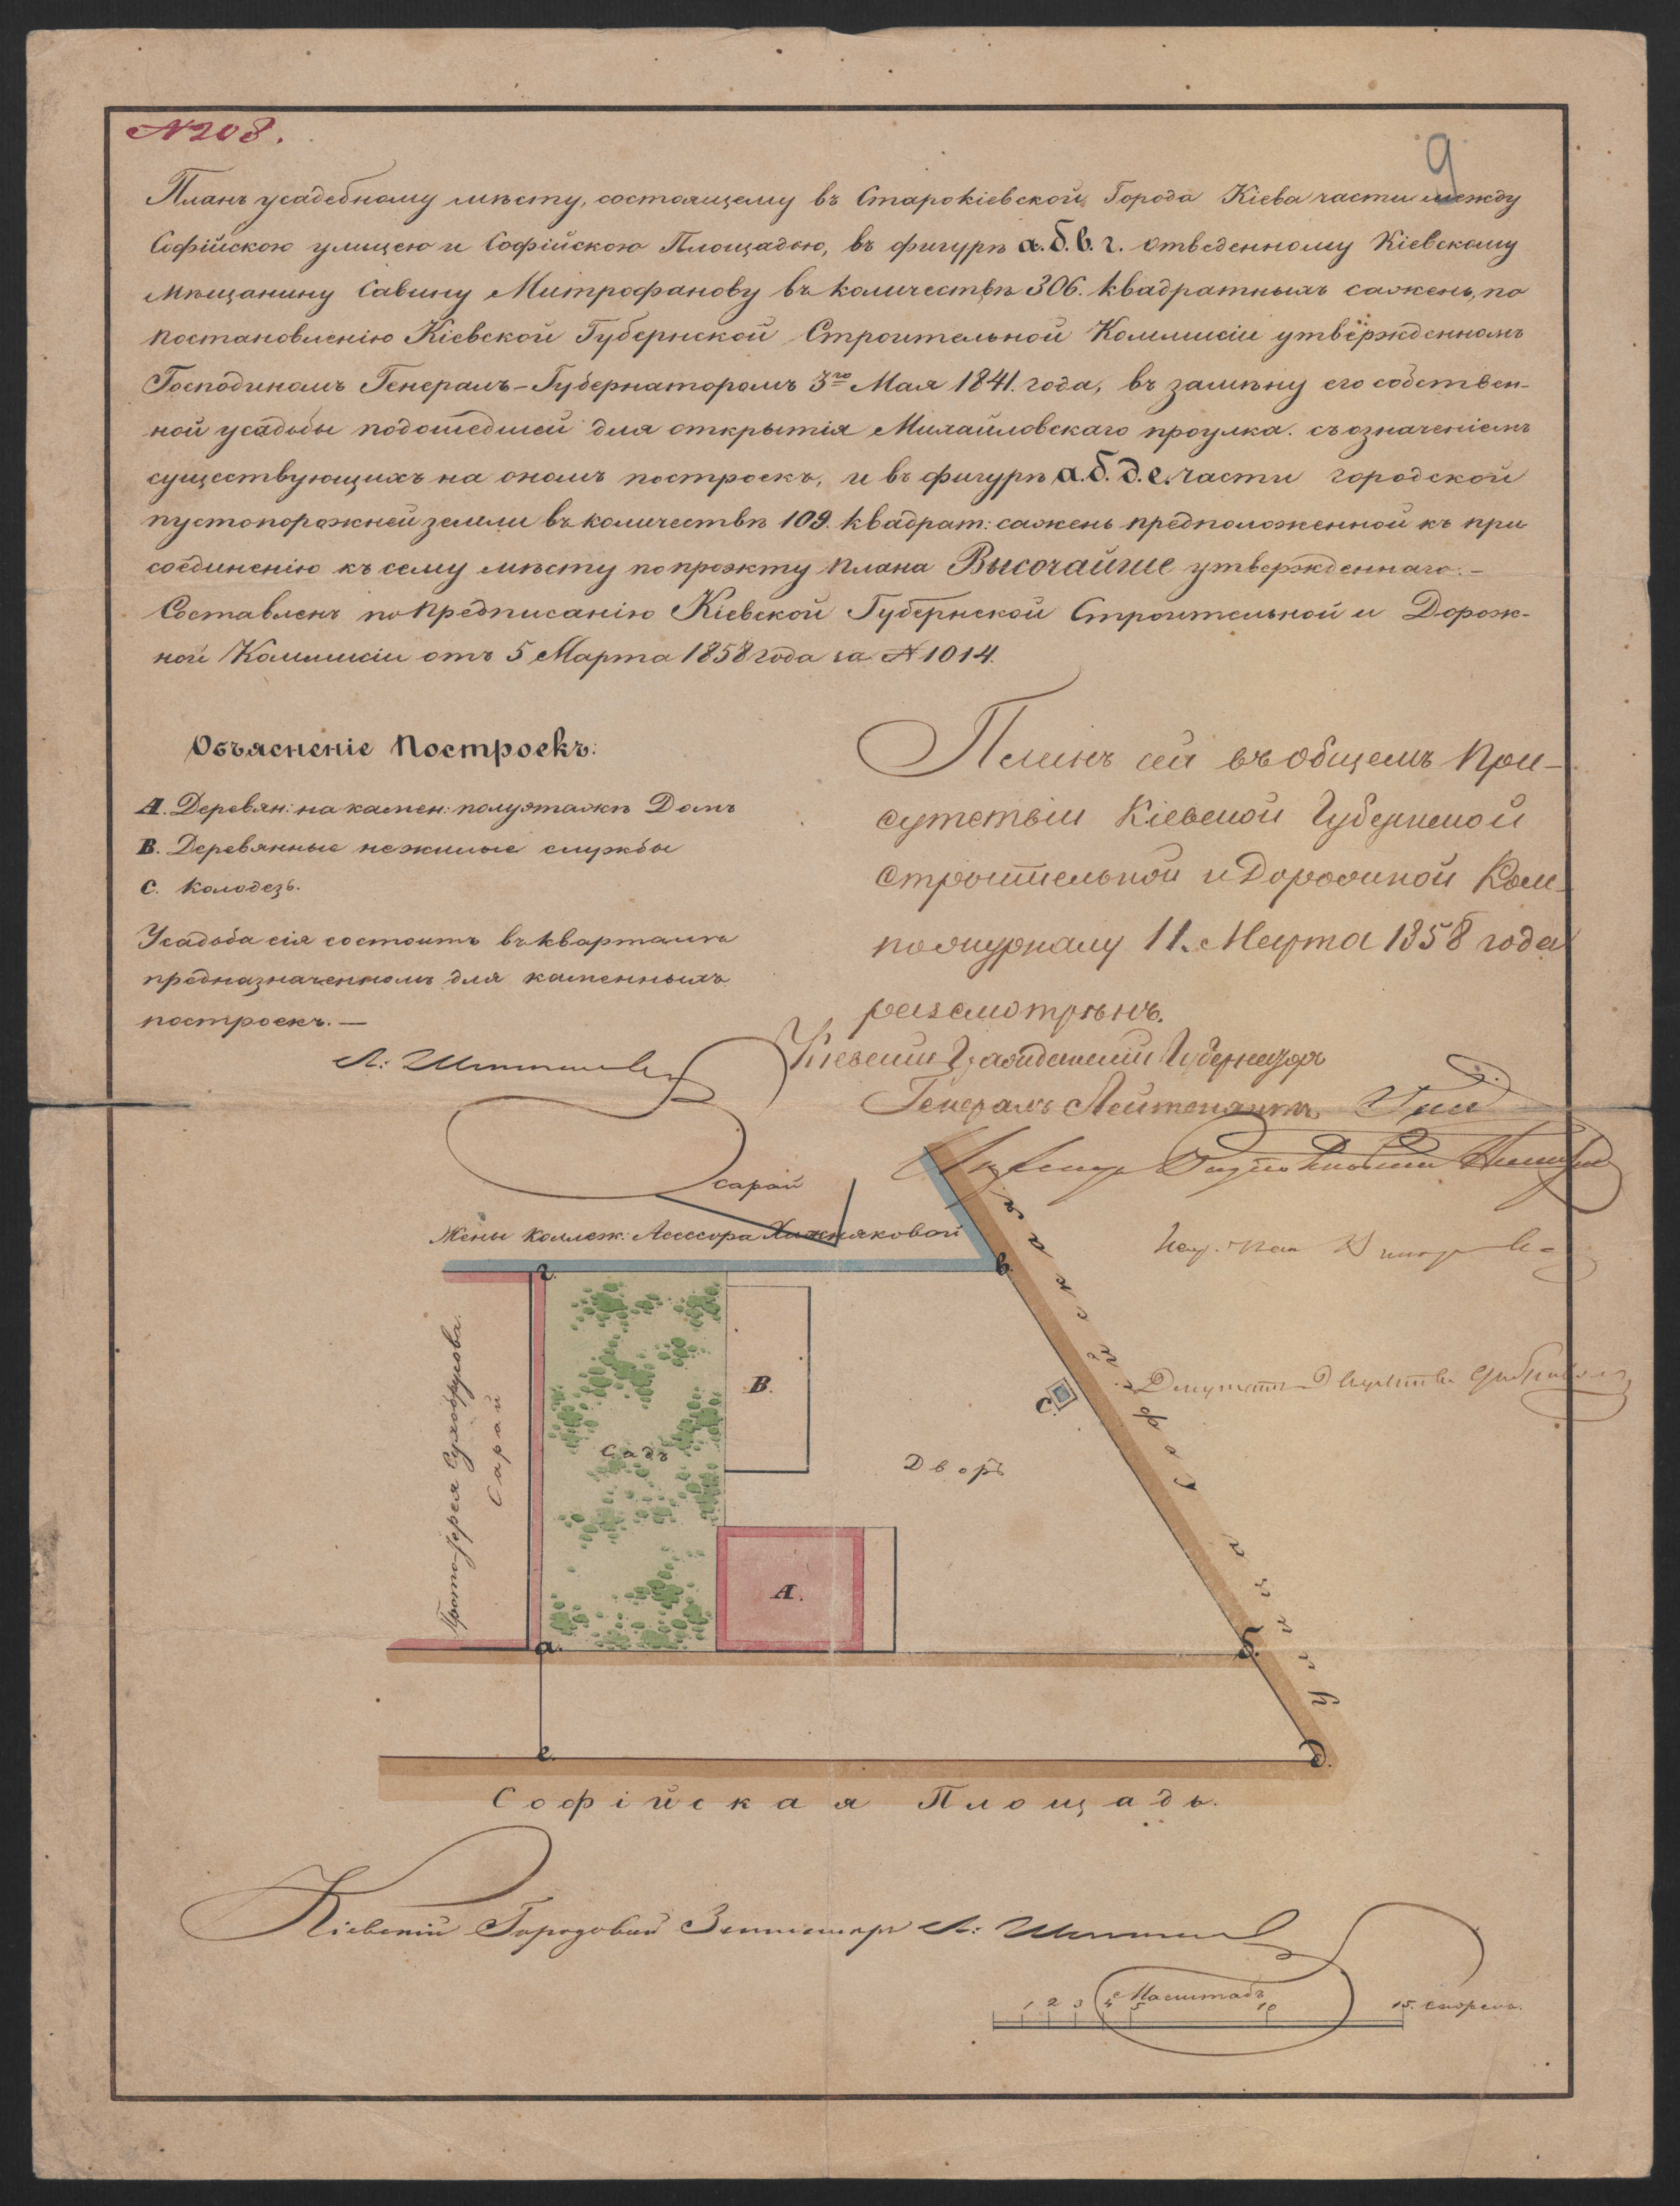 № 208.
9
Планъ усадебному мѣсту, состоящему въ Старокіевской Города Кіева части между
Софійскою улицею и Софійскою Площадью, въ фигурѣ а.б.в.г. отведенному Кіевскому
Мѣщанину Савину Митрофанову въ количествѣ 306. квадратныхъ сажень, по
постановленію Кіевской Губернской Строительной Коммисіи утвержденномъ
Господиномъ Генералъ-Губернаторомъ 3го Мая 1841. года, въ замѣну его собствен-
ной усадьбы подошедшей для открытія Михайловскаго проулка. съ означеніемъ
существующихъ на ономъ построекъ, и въ фигурѣ а.б.д.е. части городской
пустопорожней земли въ количествѣ 109. квадрат: сажень предположенной къ при
соединенію къ сему мѣсту по проэкту плана Высочайше утвержденнаго.-
Составленъ по предписанію Кіевской Губернской Строительной и Дорож-
ной Коммисіи отъ 5 Марта 1858 года за № 1014.
Объясненіе Построекъ:
А. Деревян: на камен: полуэтажѣ Домъ
В. Деревянные нежилые службы
С. Колодезь.
Усадьба сія состоитъ въ кварталѣ
предназначенномъ для каменныхъ
построекъ.—
Планъ сей въ общемъ При-
сутствіи Кіевской Губернской
Строительной и Дорожной Ком-
по журналу 11. Марта 1858 года
разсмотрѣнъ.
Кіевскій Гражданскій Губернаторъ
Генералъ Лейтенантъ
сарай
Жены Коллеж: Ассесора Хижняковой
г.
в.
Протоіерея Сухобрусова.
Сарай
Садъ
В.
С.
Дворъ
А.
Софійская улица
а.
б.
е.
д.
Софійская Площадь.
Кіевскій Городовой Землемѣръ Л:
Масштабъ
1 2 3 4 5 10 15. сажень.